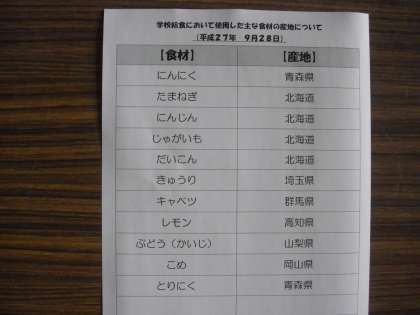 学校給食において使用した主な食材の産地について
（平成２７年　９月２８日）
【食材】　【産地】
にんにく　青森県
たまねぎ　北海道
にんじん　北海道
じゃがいも　北海道
だいこん　北海道
きゅうり　埼玉県
キャベツ　群馬県
レモン　高知県
ぶどう（かいじ）　山梨県
こめ　岡山県
とりにく　青森県